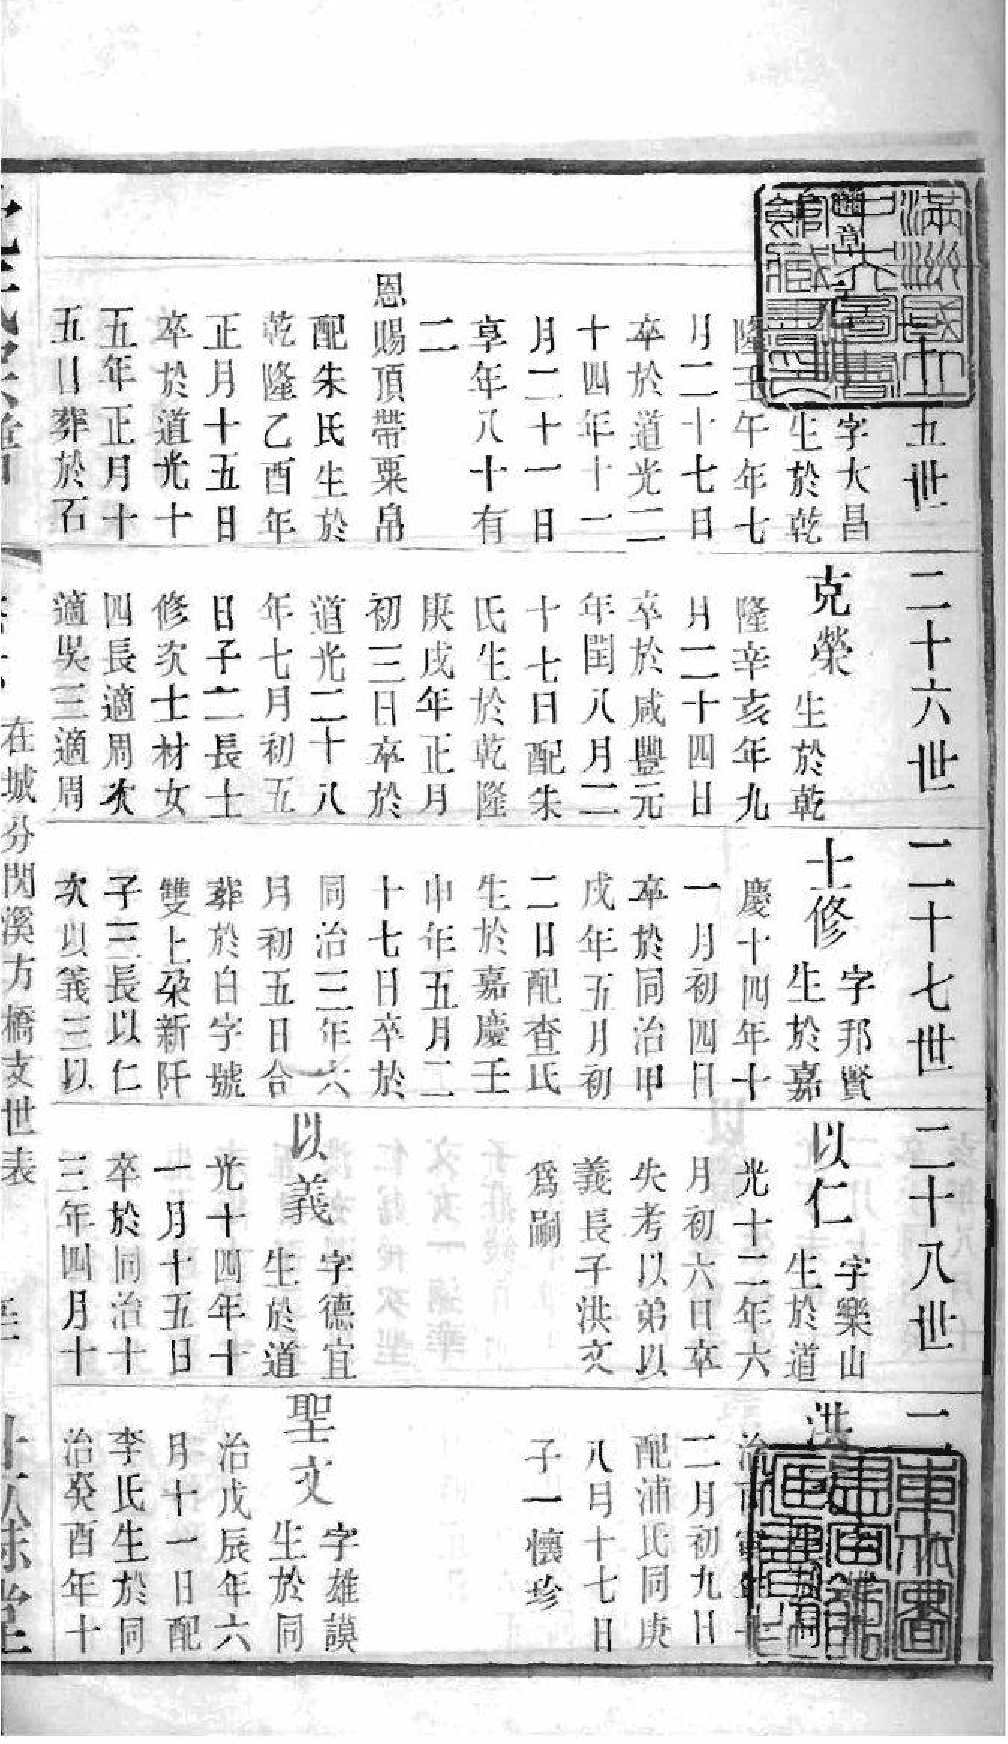 五世
字大昌
生於乾
隆壬午年七
月二十七日
卒於道光二
十四年十一
月二十一日
享年八十有
二
恩賜頂帶粟帛
配朱氏生於
乾隆乙酉年
正月十五日
卒於道光十
五年正月十
五日葬於石
二十六世
克榮
生於乾
隆辛亥年九
月二十四日
卒於咸豐元
年閏八月二
十七日配朱
氏生於乾隆
庚戌年正月
初三日卒於
道光二十八
年七月初五
日子二長士
修次士材女
四長適周次
適吳三適周
二十七世
士修
字邦賢
生於嘉
慶十四年十
一月初四日
卒於同治甲
戌年五月初
二日配查氏
生於嘉慶壬
申年五月二
十七日卒於
同治三年六
月初五日合
葬於白字號
雙上朶新阡
子三長以仁
次以義三以
二十八世
以仁
字樂山
生於道
光十二年六
月初六日卒
失考以弟以
義長子洪文
爲嗣
以義
字德宜
生於道
光十四年十
一月十五日
卒於同治十
三年四月十
二
洪
二月初九日
配浦氏同庚
八月十七日
子一懷珍
聖文
字雄謨
生於同
治戊辰年六
月十一日配
李氏生於同
治癸酉年十
在城分閃溪方橋支世表